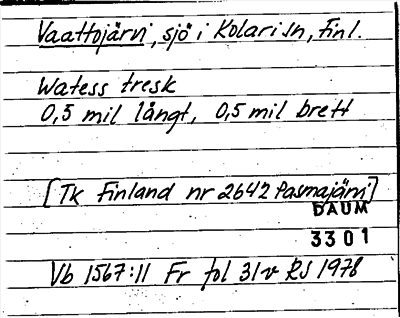 Vaattojärvi, sjö i Kolari sn, Finl.
Watess tresk
0,5 mil långt, 0,5 mil brett
[Tk Finland nr 2642 Pasmajärvi]
DAUM
3301
Vb 1567:11 Fr fol 31v RS 1978